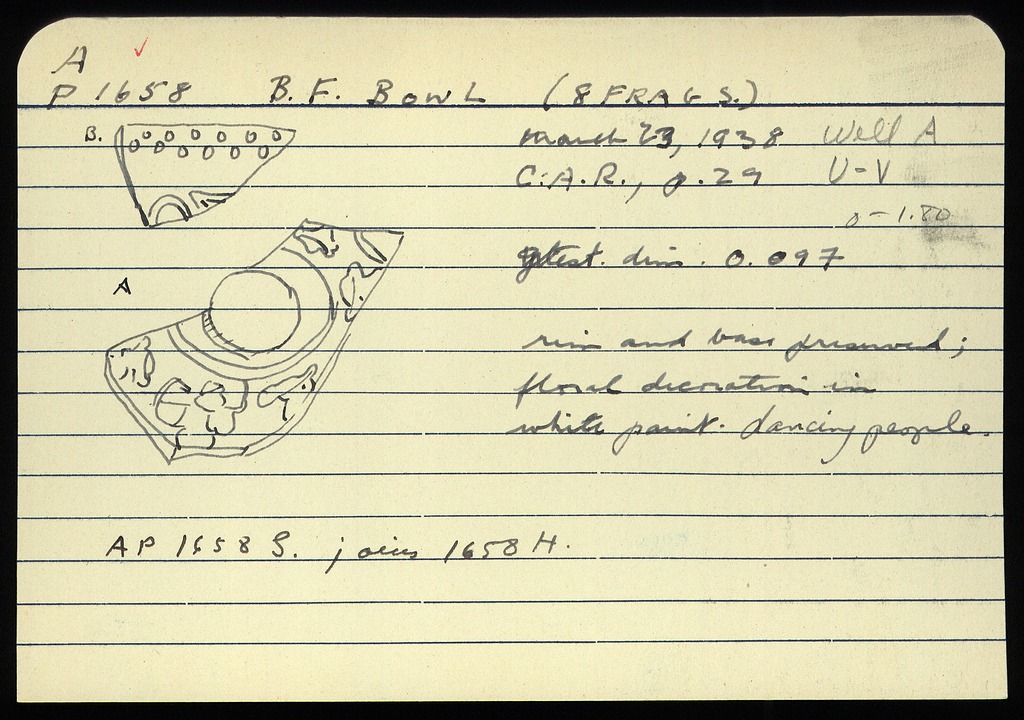 A
P 1658 B.F. BOWL (8 FRAGS.)
B.
March 23, 1938 Well A
C.A.R., p. 29 U-V
0-1.80
gtest. dim. 0.097
A
rim and base preserved;
floral decoration in
white paint. dancing people.
AP 1658 G. joins 1658 H.